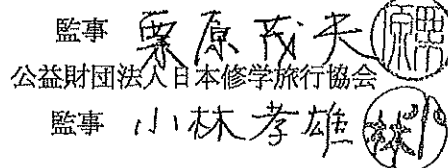 監事 栗原茂夫
公益財団法人日本修学旅行協会
監事 小林孝雄